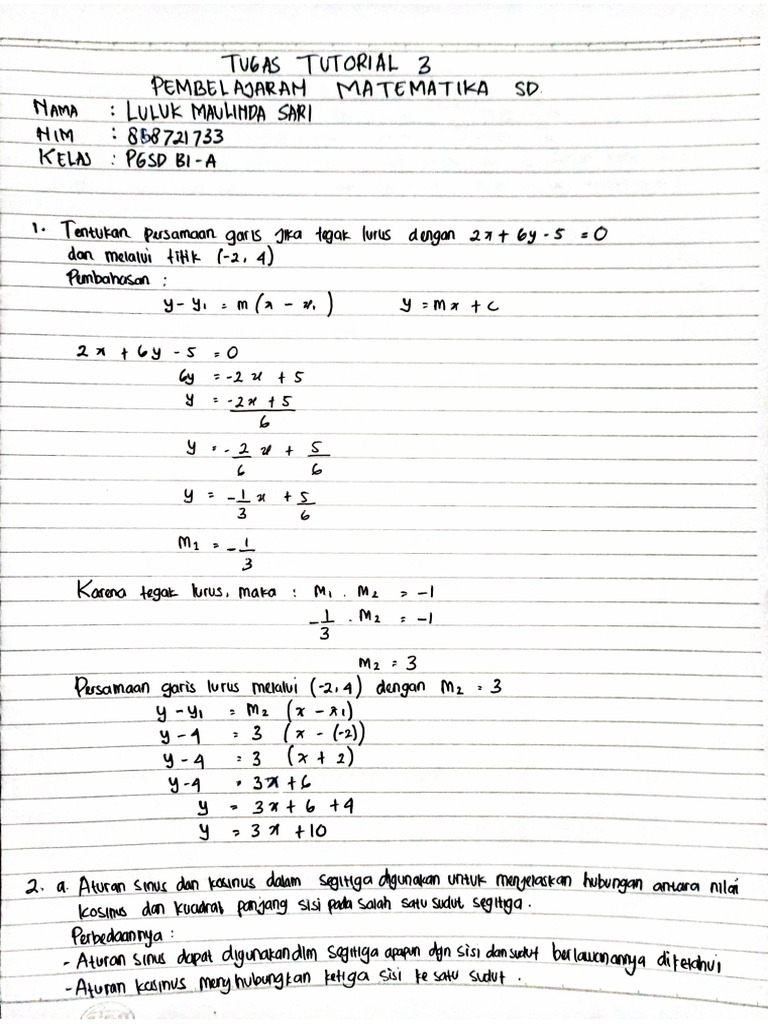 TUGAS TUTORIAL 3
PEMBELAJARAM MATEMATIKA SD.
NAMA : LULUK MAULINDA SARI
NIM : 858721733
KELAS : PGSD BI-A
1. Tentukan persamaan garis jika tegak lurus dengan 2x + 6y - 5 = 0
dan melalui titik (-2, 4)
Pembahasan :
y - y₁ = m (x - x₁) y = mx + c
2x + 6y - 5 = 0
6y = -2x + 5
y = (-2x + 5)/6
y = -2/6 x + 5/6
y = -1/3 x + 5/6
M₁ = -1/3
Karena tegak lurus, maka : M₁ . M₂ = -1
-1/3 . M₂ = -1
M₂ = 3
Persamaan garis lurus melalui (-2,4) dengan M₂ = 3
y - y₁ = M₂ (x - x₁)
y - 4 = 3 (x - (-2))
y - 4 = 3 (x + 2)
y - 4 = 3x + 6
y = 3x + 6 + 4
y = 3x + 10
2. a. Aturan sinus dan kosinus dalam segitiga digunakan untuk menjelaskan hubungan antara nilai
kosinus dan kuadrat panjang sisi pada salah satu sudut segitiga.
Perbedaannya :
- Aturan sinus dapat digunakan dlm segitiga apapun dgn sisi dan sudut berlawanannya diketahui
- Aturan kosinus menghubungkan ketiga sisi ke satu sudut.